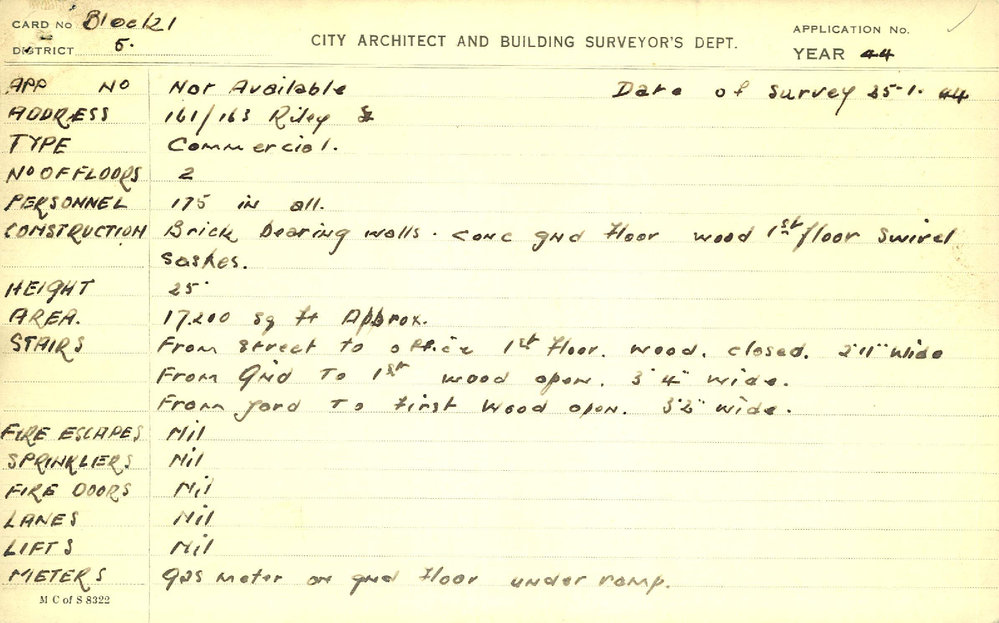 CARD No Block 21
DISTRICT 5.
CITY ARCHITECT AND BUILDING SURVEYOR'S DEPT.
APPLICATION No.
YEAR 44
APP NO Not Available Date of Survey 25-1-44
ADDRESS 161/163 Riley St
TYPE Commercial.
No OF FLOORS 2
PERSONNEL 175 in all.
CONSTRUCTION Brick bearing walls. conc gnd floor wood 1st floor swivel
sashes.
HEIGHT 25'
AREA. 17.200 sq ft Approx.
STAIRS From street to office 1st floor. wood. closed. 2'11" wide
From Gnd To 1st wood open. 3'4" wide.
From yard To first wood open. 3'2" wide.
FIRE ESCAPES Nil
SPRINKLERS Nil
FIRE DOORS Nil
LANES Nil
LIFTS Nil
METERS Gas meter on gnd floor under ramp.
M C of S 8322